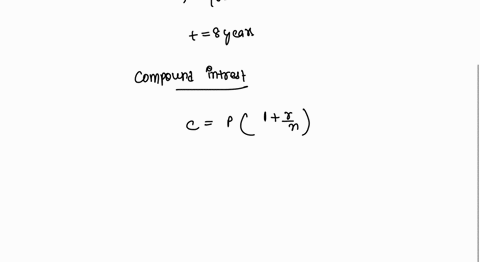 t = 8 year
Compound intrest
C = P ( 1 + r/n )